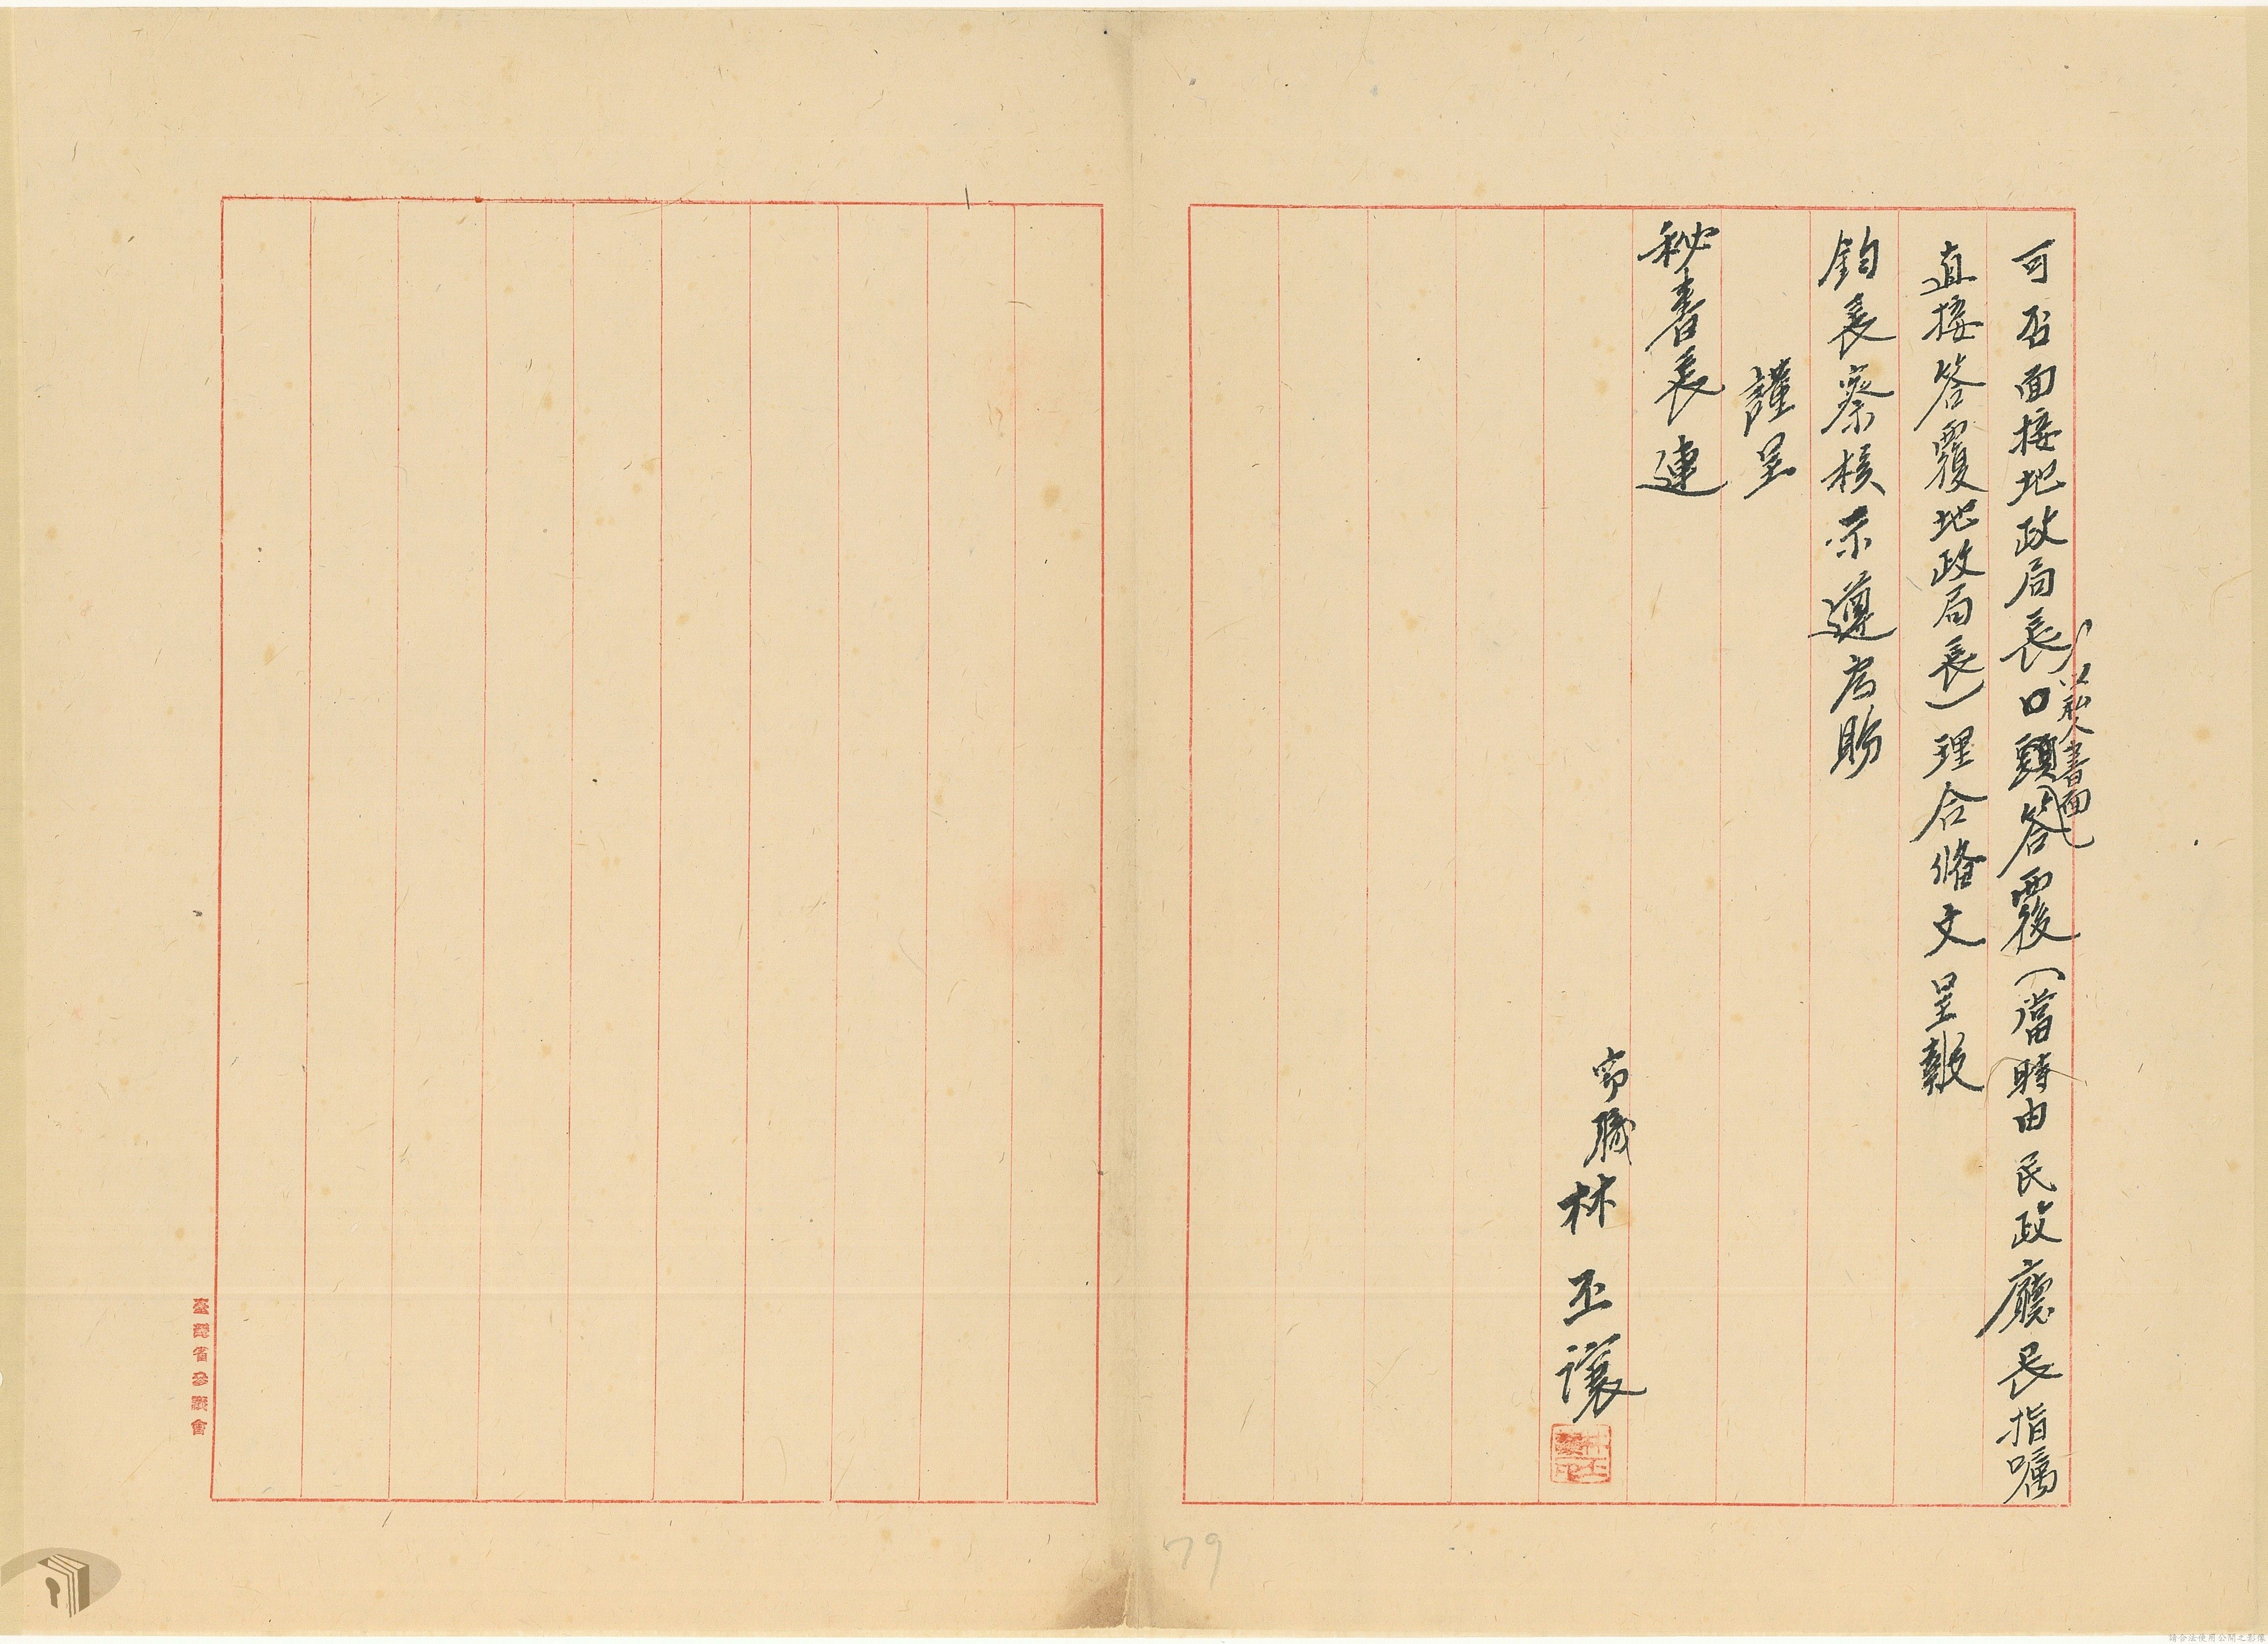 可否面接地政局長口頭(以私人書面)答覆後(當時由民政廳長指囑
直接答覆地政局長)理合脩文呈報
鈞長察核示遵為盼
謹呈
秘書長連
職林丕讓
臺灣省參議會
79
請合法使用公開之影像